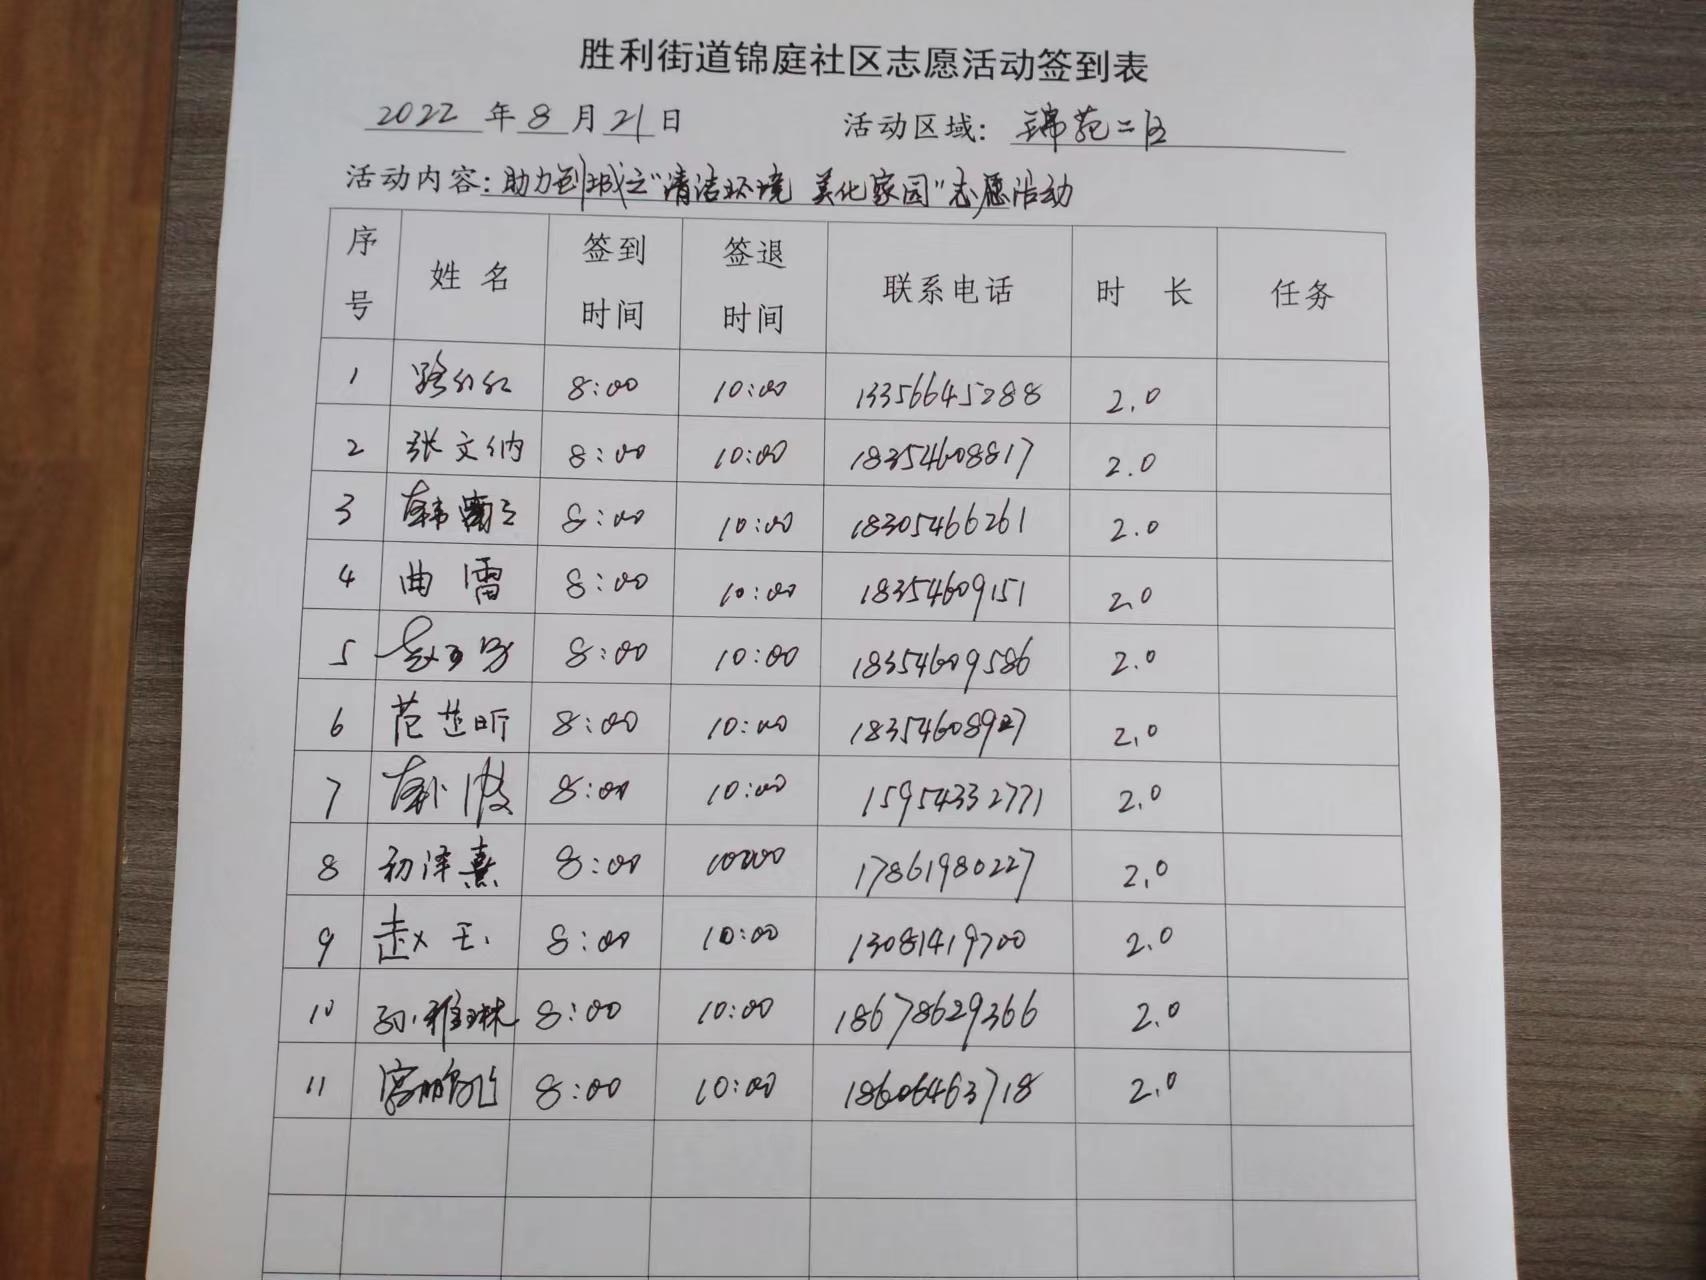 胜利街道锦庭社区志愿活动签到表
2022年8月21日 活动区域：锦苑二区
活动内容：助力创城之"清洁环境 美化家园"志愿活动
序号 姓名 签到时间 签退时间 联系电话 时长 任务
1 路红红 8:00 10:00 13356645288 2.0
2 张文纳 8:00 10:00 18354608817 2.0
3 韩 8:00 10:00 18305466261 2.0
4 曲雷 8:00 10:00 18354609151 2.0
5 8:00 10:00 18354609586 2.0
6 范芷昕 8:00 10:00 18354608927 2.0
7 8:00 10:00 15954332771 2.0
8 初泽熹 8:00 10:00 17861980227 2.0
9 赵玉 8:00 10:00 13081419700 2.0
10 孙雅琳 8:00 10:00 18678629366 2.0
11 8:00 10:00 18606463718 2.0